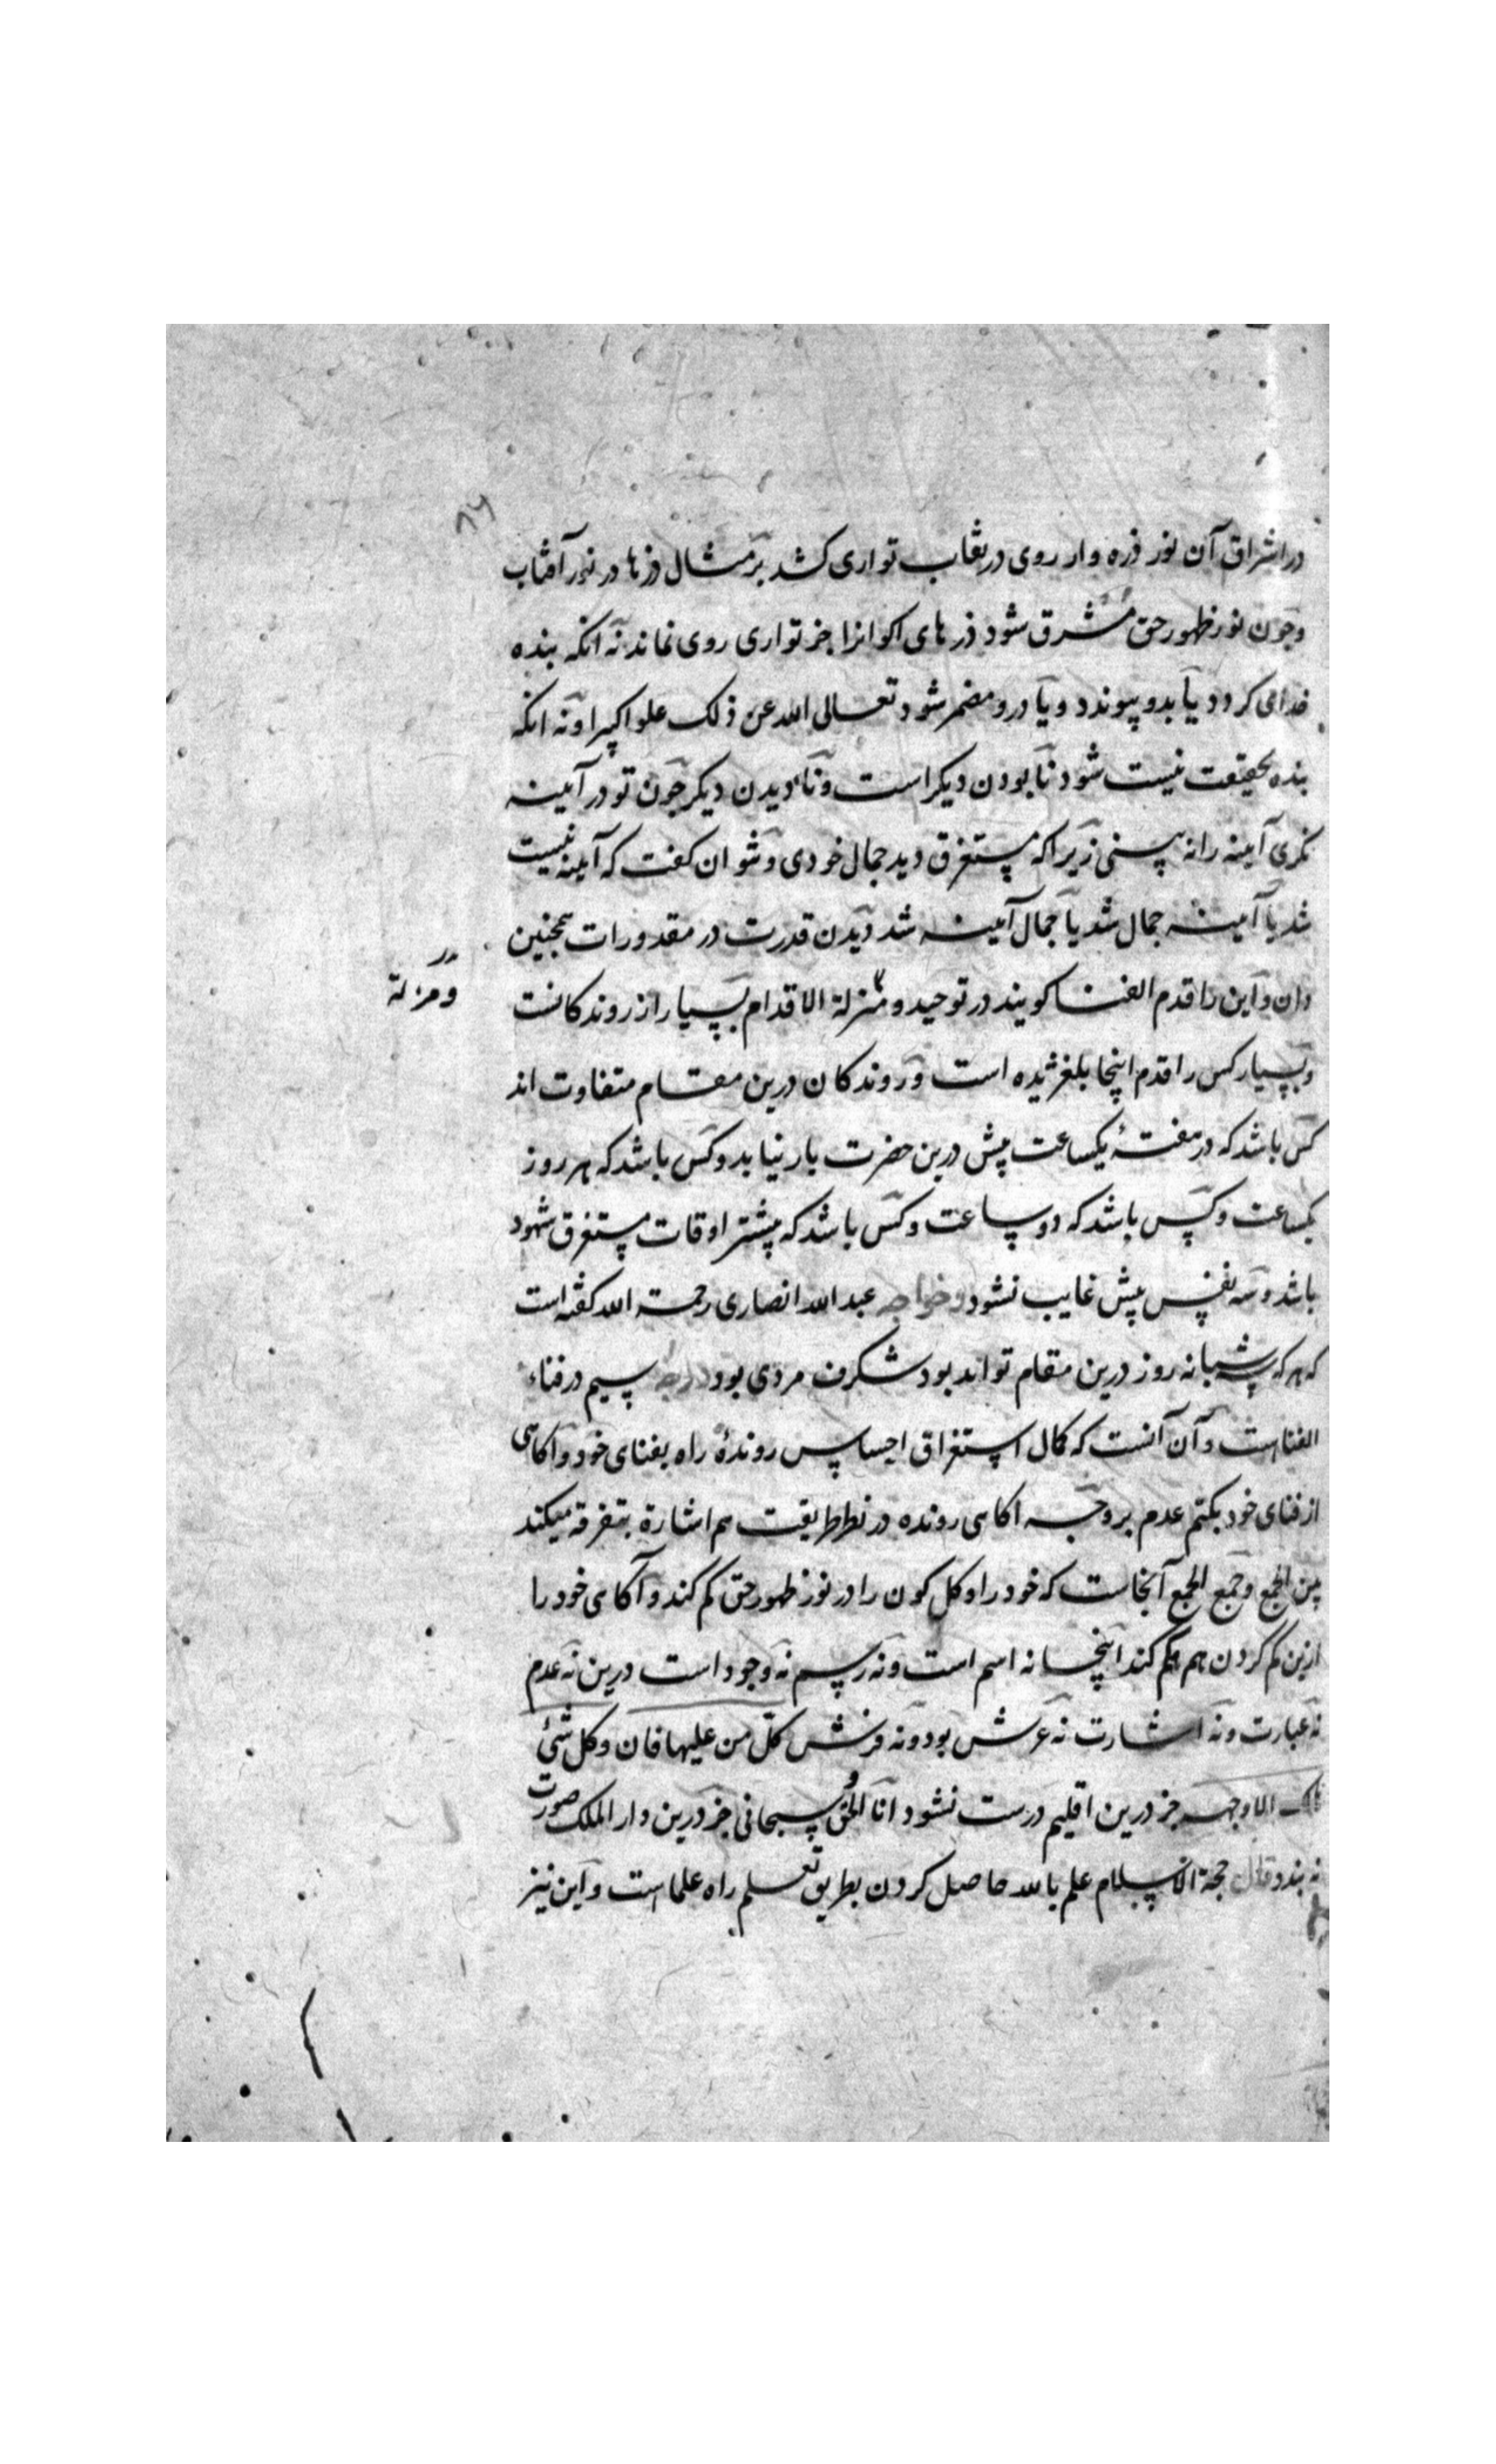 ۸۹
در اشراق آن نور ذره وار روی در نقاب تواری کشد بر مثال ذرها در نور آفتاب
و چون نور ظهور حق مشرق شود ذرهای اکوانرا جز تواری روی نماند نه آنکه بنده
خدای کردد یا بدو پیوندد و یا درو مضمر شود تعالی الله عن ذلک علوا کبیرا و نه انکه
بنده بحقیقت نیست شود نابودن دیکر است و نادیدن دیکر چون تو در آیینه
نکری آیینه را نه بینی زیرا که مستغرق دید جمال خودی و نتوان کفت که آیینه نیست
شد یا آیینه جمال شد یا جمال آیینه شد دیدن قدرت در مقدورات همچنین
دان و این را قدم الفنا کویند در توحید و منزلة الاقدام بسیار از روندکانست
ومزلة
و بسیار کس را قدم اینجا بلغزیده است و روندکان درین مقام متفاوت اند
کس باشد که در هفتهٔ یکساعت بیش درین حضرت بار نیابد و کس باشد که هر روز
یکساعت و کس باشد که دو ساعت و کس باشد که بیشتر اوقات مستغرق شهود
باشد و سه نفس بیش غایب نشود و خواجه عبد الله انصاری رحمة الله کفته است
که هر که شبانه روز درین مقام تواند بود شکرف مردی بود درجه سیم در فناء
الفناست و آن آنست که کمال استغراق احساس روندهٔ راه بفنای خود و آکاهی
از فنای خود بکتم عدم برد چه اکاهی رونده در نظر طریقت هم اشارة بتفرقه میکند
بین الجمع و جمع الجمع آنجاست که خود را و کل کون را در نور ظهور حق کم کند و آکاهی خود را
ازین کم کردن هم کم کند اینجا نه اسم است و نه رسم نه وجود است درین نه عدم
نه عبارت و نه اشارت نه عرش بود و نه فرش کل من علیها فان و کل شئ
هالک الا وجهه جز درین اقلیم درست نشود انا الحق و سبحانی جز درین دار الملک صورت
نه بندد قال حجة الاسلام علم بالله حاصل کردن بطریق تعلم راه علماست و این نیز